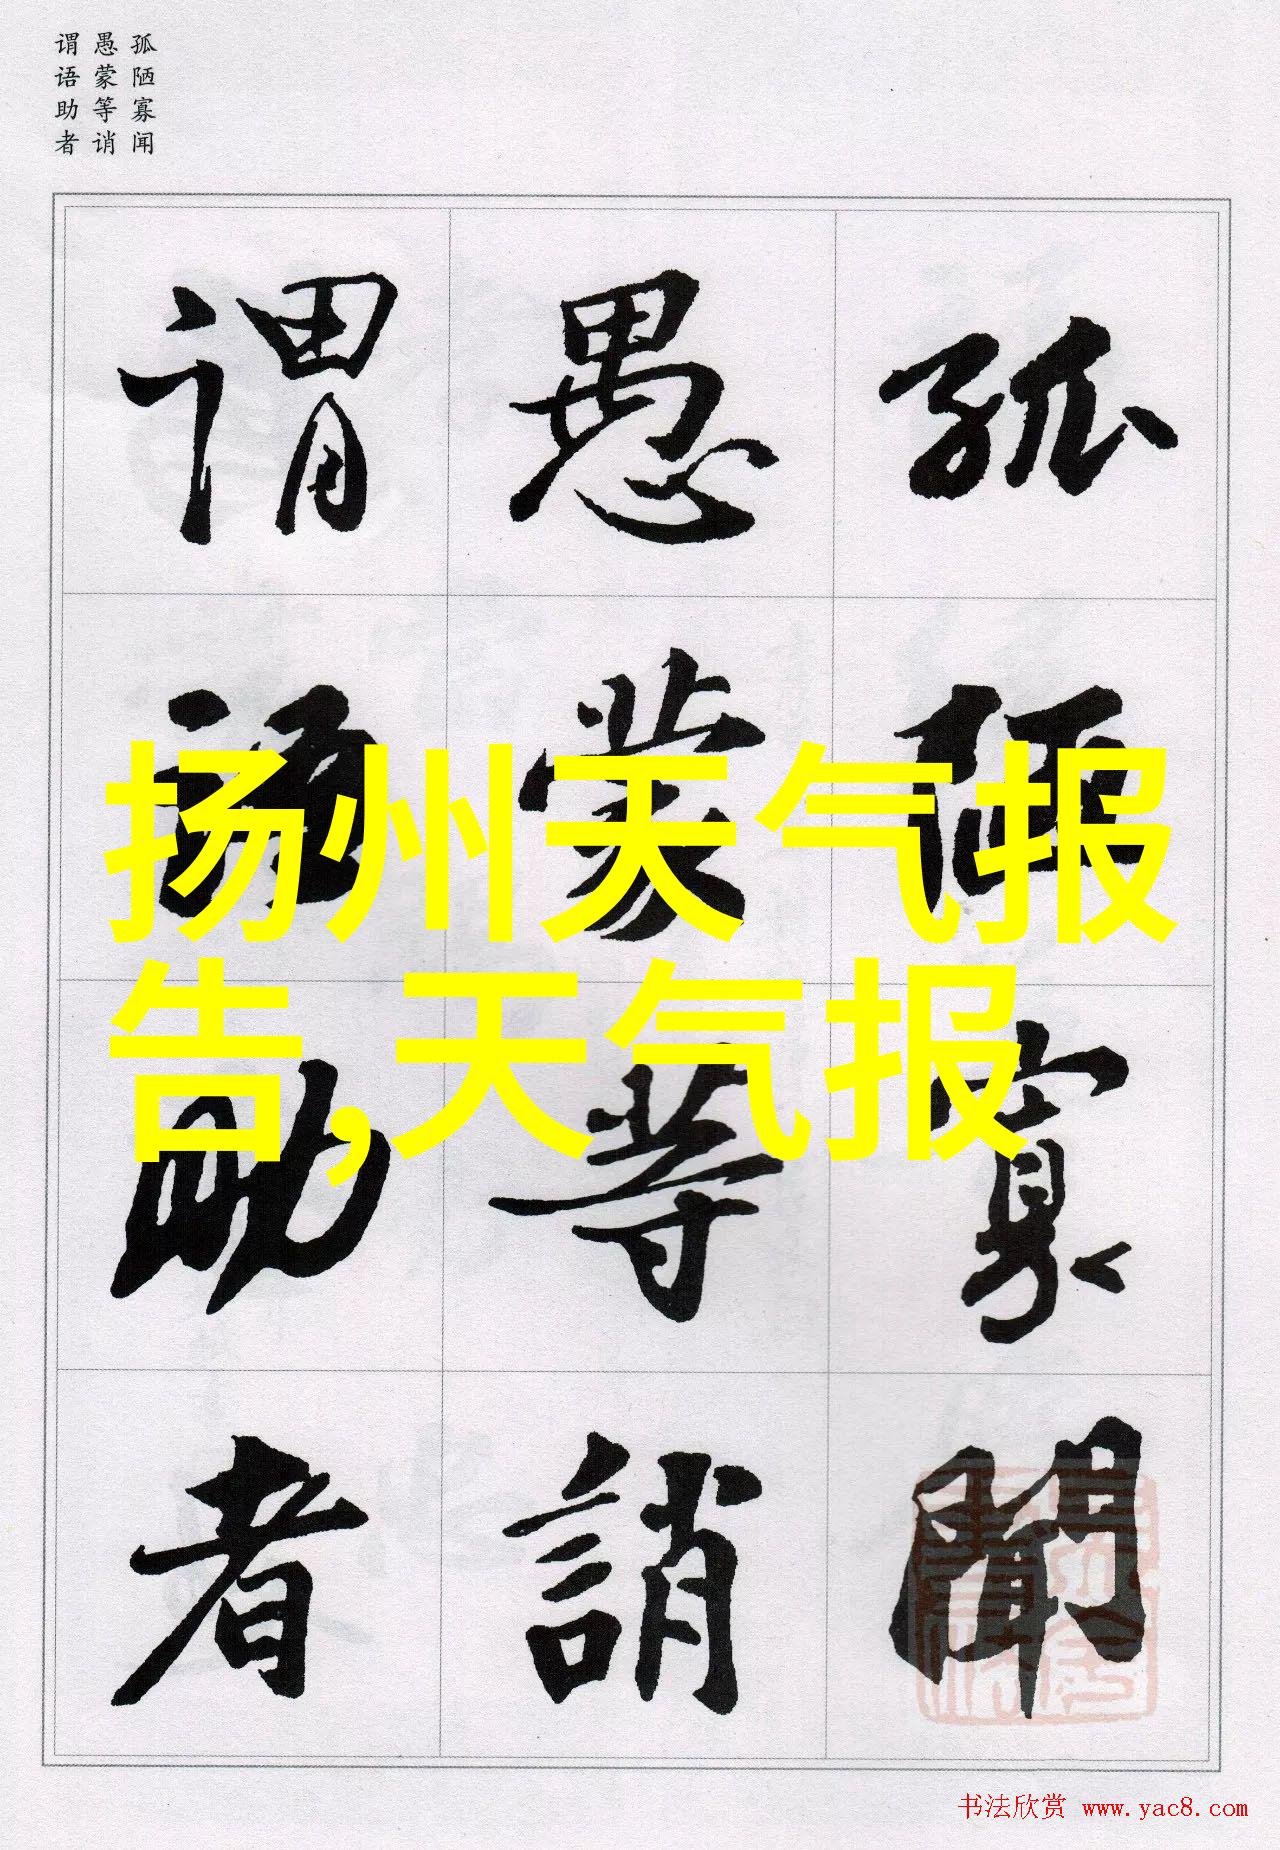 孤陋寡闻
愚蒙等诮
谓语助者
孤陋寡聞
愚蒙等誚
谓语助者
扬州天气报
告,天气报
书法欣赏 www.yac8.com